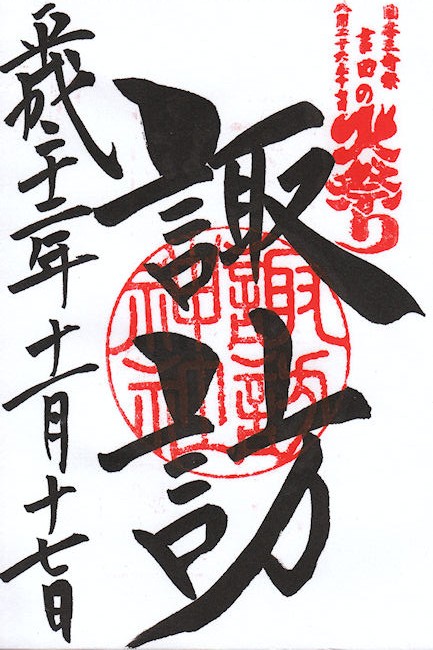 日本三奇祭
吉田の
火祭り
八月二十六・二十七日
諏訪
諏訪
神社
平成二十二年十一月十七日